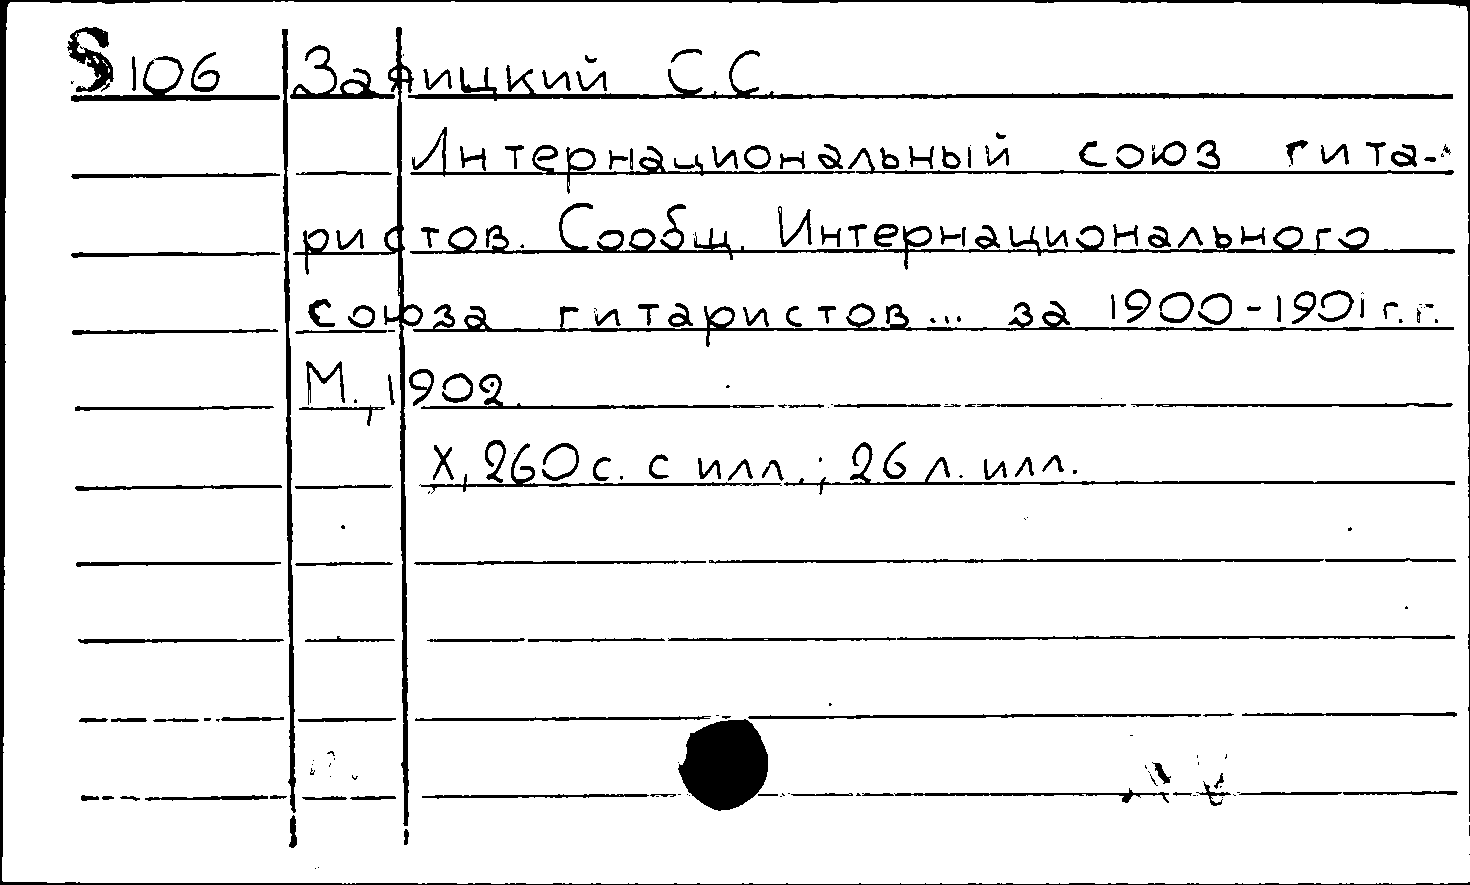 S 106 Заяицкий С.С.
Интернациональный союз гита-
ристов. Сообщ. Интернационального
союза гитаристов... за 1900-1901 г.г.
М., 1902.
X, 260 с. с илл.; 26 л. илл.